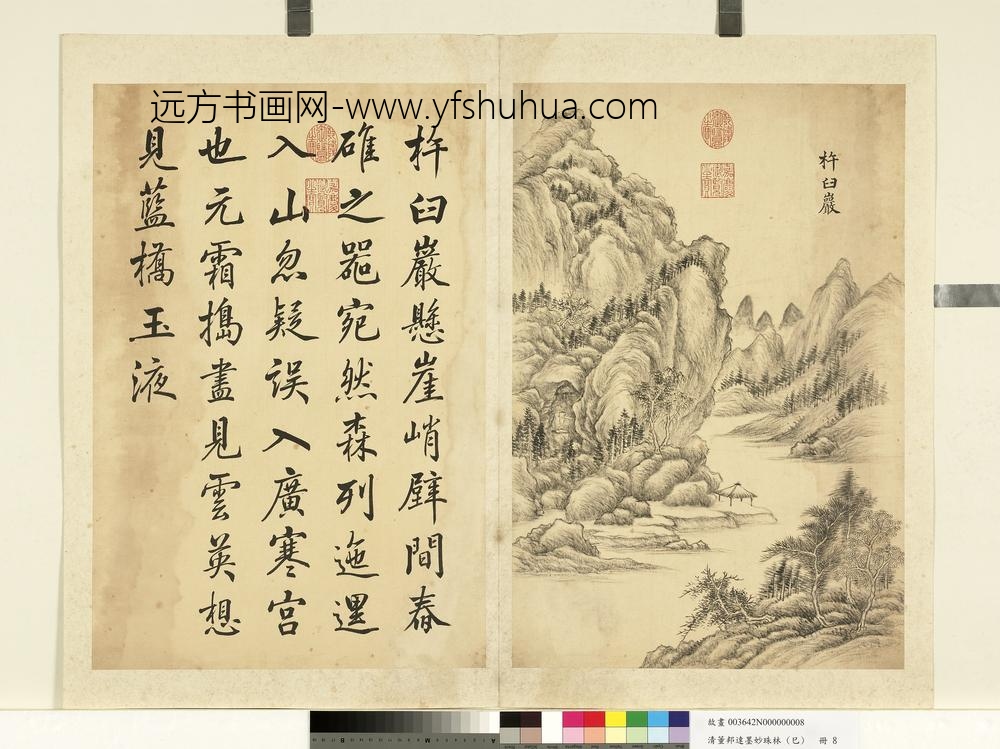 远方书画网-www.yfshuhua.com
杵臼巖
杵臼巖懸崖峭壁間舂
碓之器宛然森列迤邐
入山忽疑誤入廣寒宫
也元霜搗盡見雲英想
見藍橋玉液
故畫 003642N000000008
清董邦達墨妙珠林（巳） 冊 8